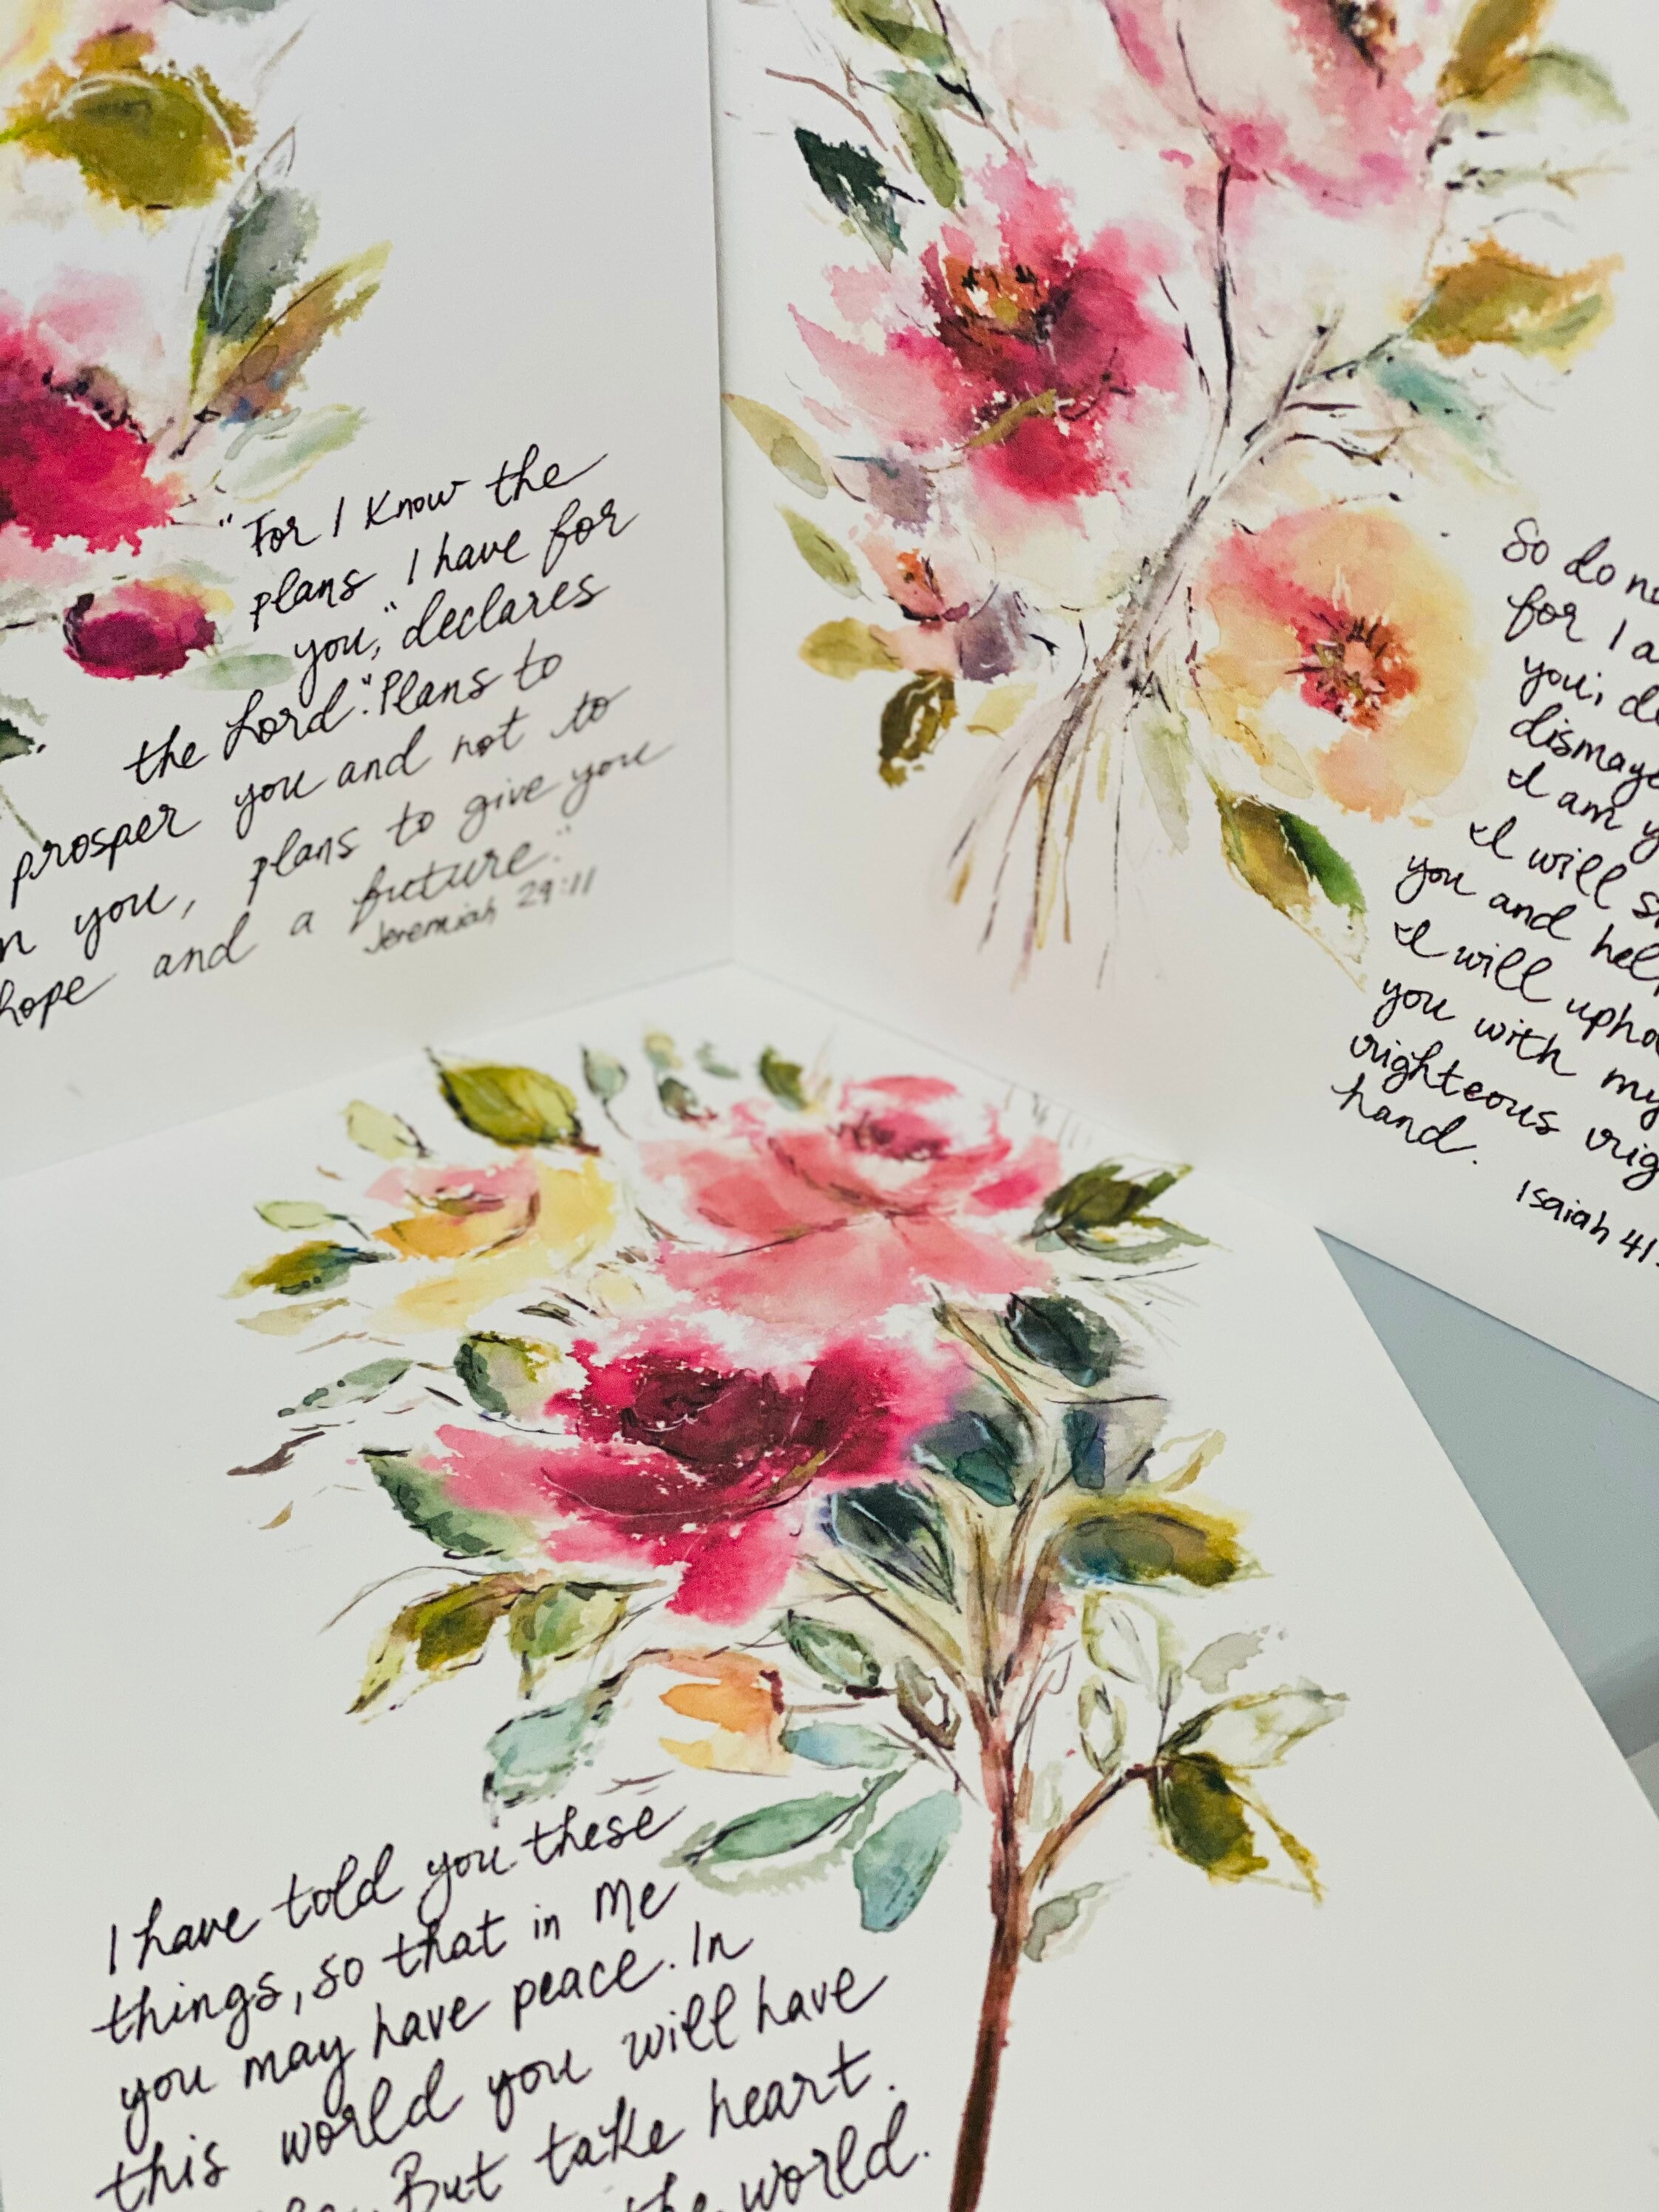 "For I know the
plans I have for
you," declares
the Lord. "Plans to
prosper you and not to
you, plans to give you
hope and a future."
Jeremiah 29:11
So do
for I
you;
I am
I will
you and
I will
you with my
righteous
hand.
Isaiah 41:
I have told you these
things, so that in Me
you may have peace. In
this world you will have
But take heart.
the world.